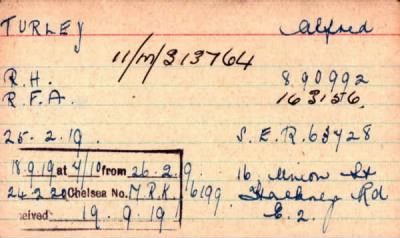 TURLEY Alfred
11/M/313764
R.H. 890992
R.F.A. 163156
25.2.19. S.E.R.63428
18.9.19 at 4/10 from 26.2.9. 16 Union St
24.2.20 Chelsea No. M.R.K. 6199 Hackney Rd
ceived 19.9.19 E.2.